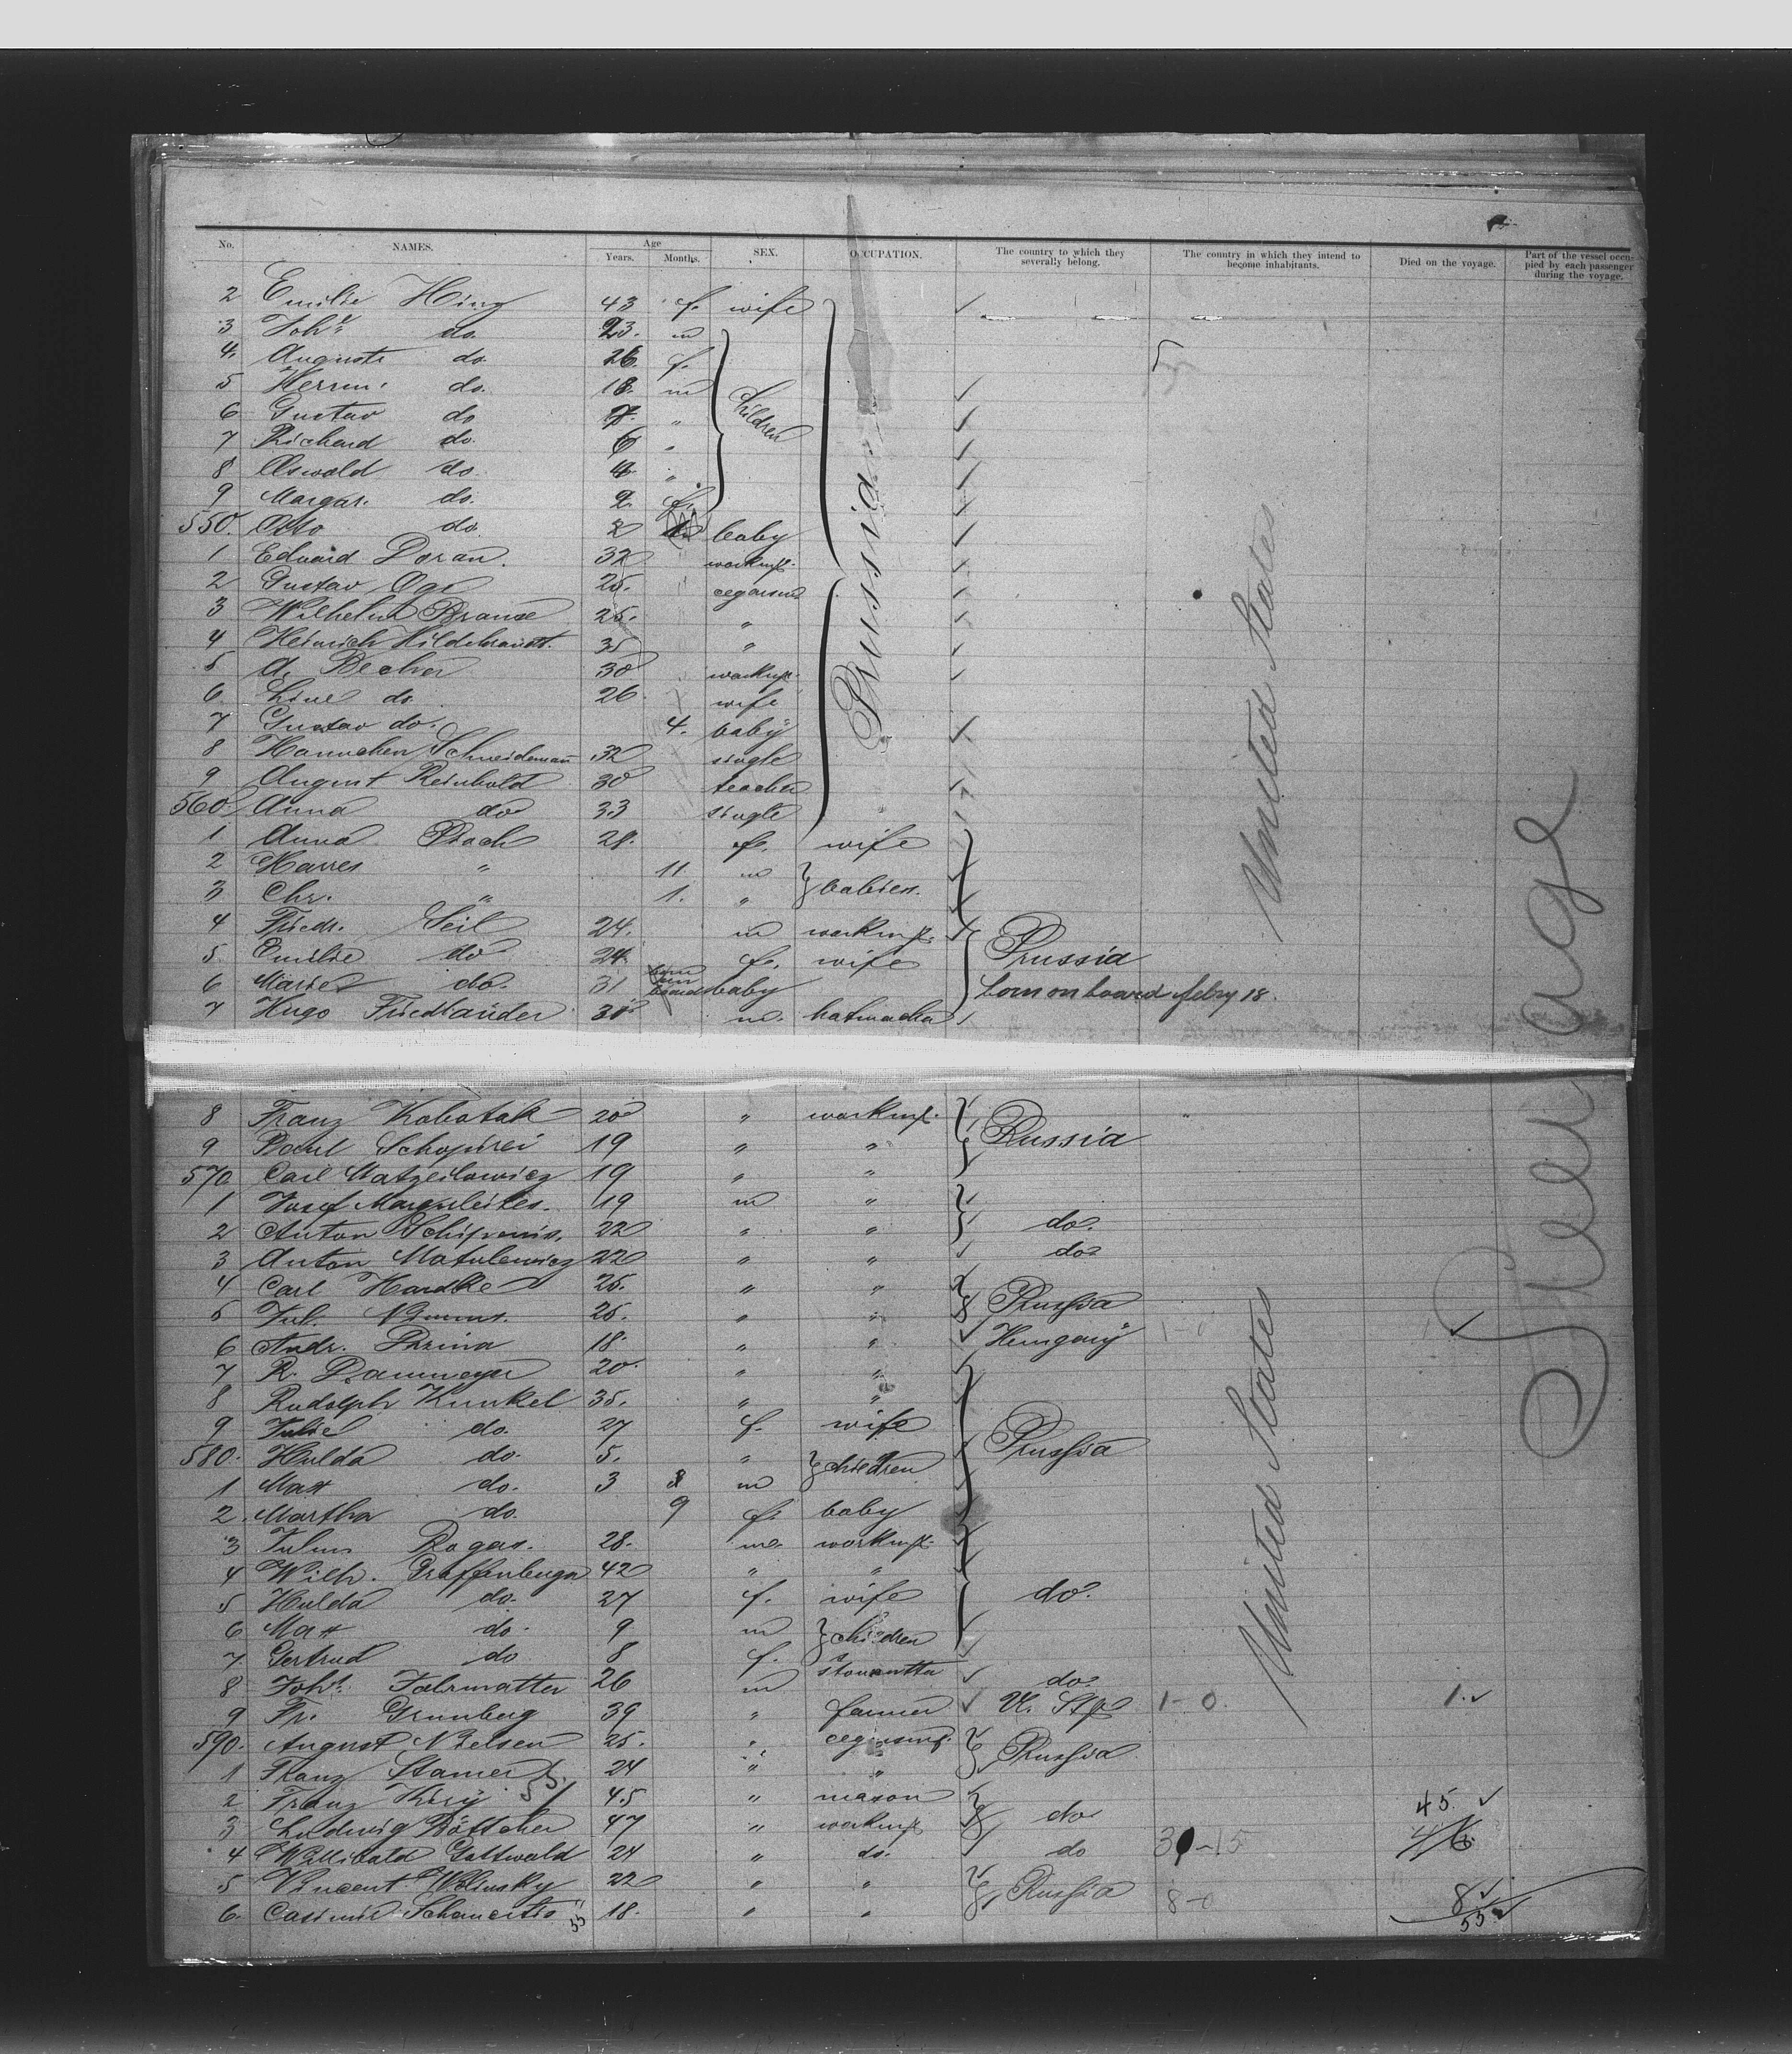 No. NAMES. Age Years. Months. SEX. OCCUPATION. The country to which they severally belong. The country in which they intend to become inhabitants. Died on the voyage. Part of the vessel occupied by each passenger during the voyage.
2 Emilie Hing 43 f. wife
3 Joh. do. 23. m
4. Auguste do. 26. f.
5 Herrm. do. 18. m
6 Gustav do 7. "
7 Richard do. 6 "
8 Oswald do. 4. "
9 Margar. do. 2. f.
Children
550. Otto do. 2 baby
1 Eduard Doran. 32 workmf.
2 Gustav Oge 25.
3 Wilhelm Brause 25. "
4 Heinrich Hildebrandt. 35 "
5 A. Becher 30 workmf.
6 Line do. 26 wife
7 Gustav do. 4. baby
8 Hannchen Schneidemann 32 single
9 August Reinhold 30 teacher
560. Anna do 33 single
Prussia
United States
1 Anna Bach 28. f. wife
2 Hannes " 11. m babies.
3 Chr. " 1. "
4 Friedr. Seil 24. m workmf.
5 Emilie do 24. f. wife Prussia
6 Marie do. 31 born on board baby born on board febry 18.
7 Hugo Friedländer 30 m. hatmacher
8 Franz Kobotak 20 " workmf.
9 Paul 19 " " Russia
570 Carl 19 " "
1 Josef Marguleites. 19 m "
2 Anton 22 " " do.
3 Anton Matulewicz 22 " " do
4 Carl Hardke 25. " "
5 Jul. 25. " " Prussia
6 Andr. Prina 18. " " Hungary 1-0
7 R. Baumeyer 20. " "
8 Rudolph Kunkel 35. " "
9 Julie do. 27 f. wife
580. Hulda do. 5. " children Prussia
1 Max do. 3 m
2. Martha do. 9 f. baby
3 Julius Rogas. 28. m. workmf.
4 Wilh. Graffenberger 42 " "
5 Hulda do. 27 f. wife do.
6 Max do. 9 m children
7 Gertrud do 8 f.
8 Joh. 26 m do.
9 Fr. Grunberg 39 " farmer U. Sts 1-0. 1.
590. August Nielsen 25. "
1 Franz Stamer 24 " " Prussia
2 Franz 45 " mason
3 Ludwig Böttcher 47 " workmf do 45.
4 Willibald Gottwald 24 " do. do
5 Vincent Wolinsky 22 " " Russia
6. Casimir 18. " " 8-0 8
55
United States
Steerage